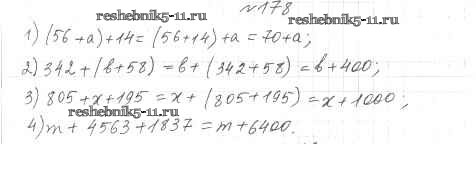 №178
reshebnik5-11.ru reshebnik5-11.ru
1) (56+a)+14=(56+14)+a=70+a;
2) 342+(b+58)=b+(342+58)=b+400;
3) 805+x+195=x+(805+195)=x+1000;
reshebnik5-11.ru
4) m+4563+1837=m+6400.